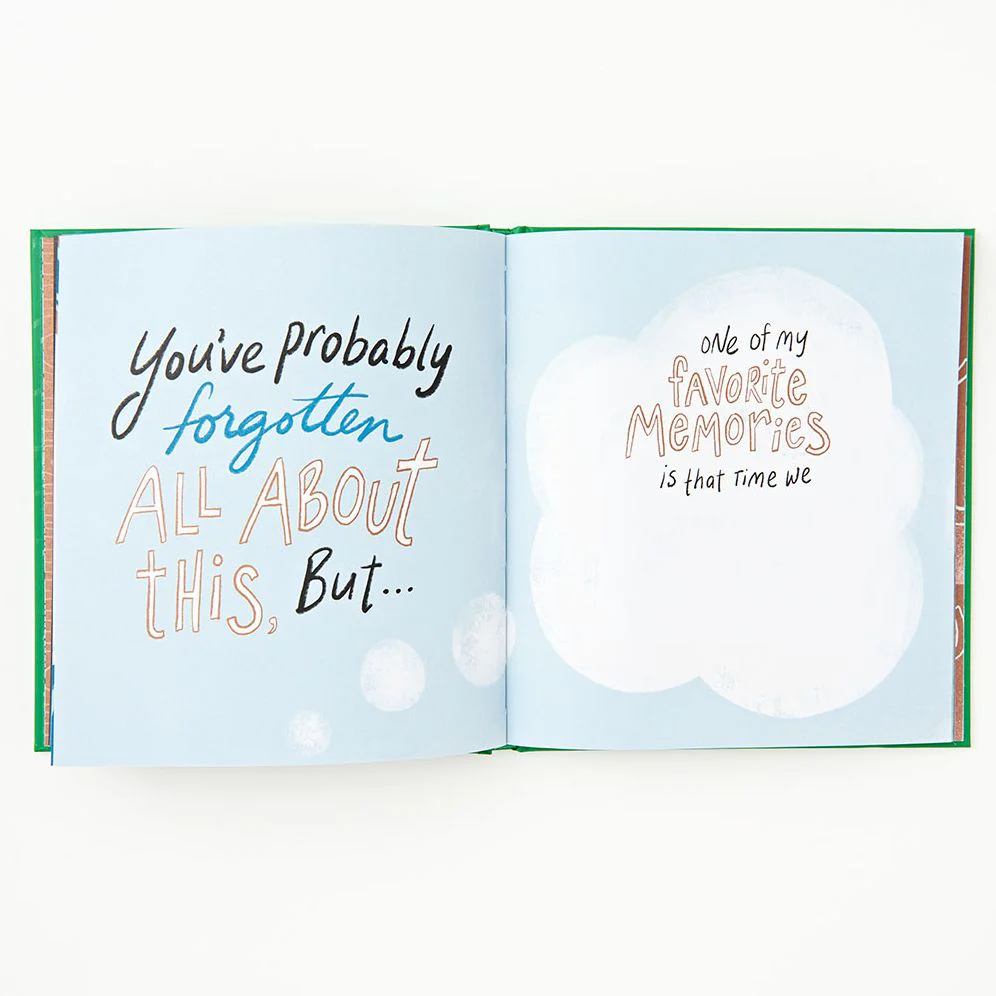 You've probably
forgotten
ALL ABOUT
tHiS, But...
oNe of my
fAVORite
MeMORieS
is that Time We